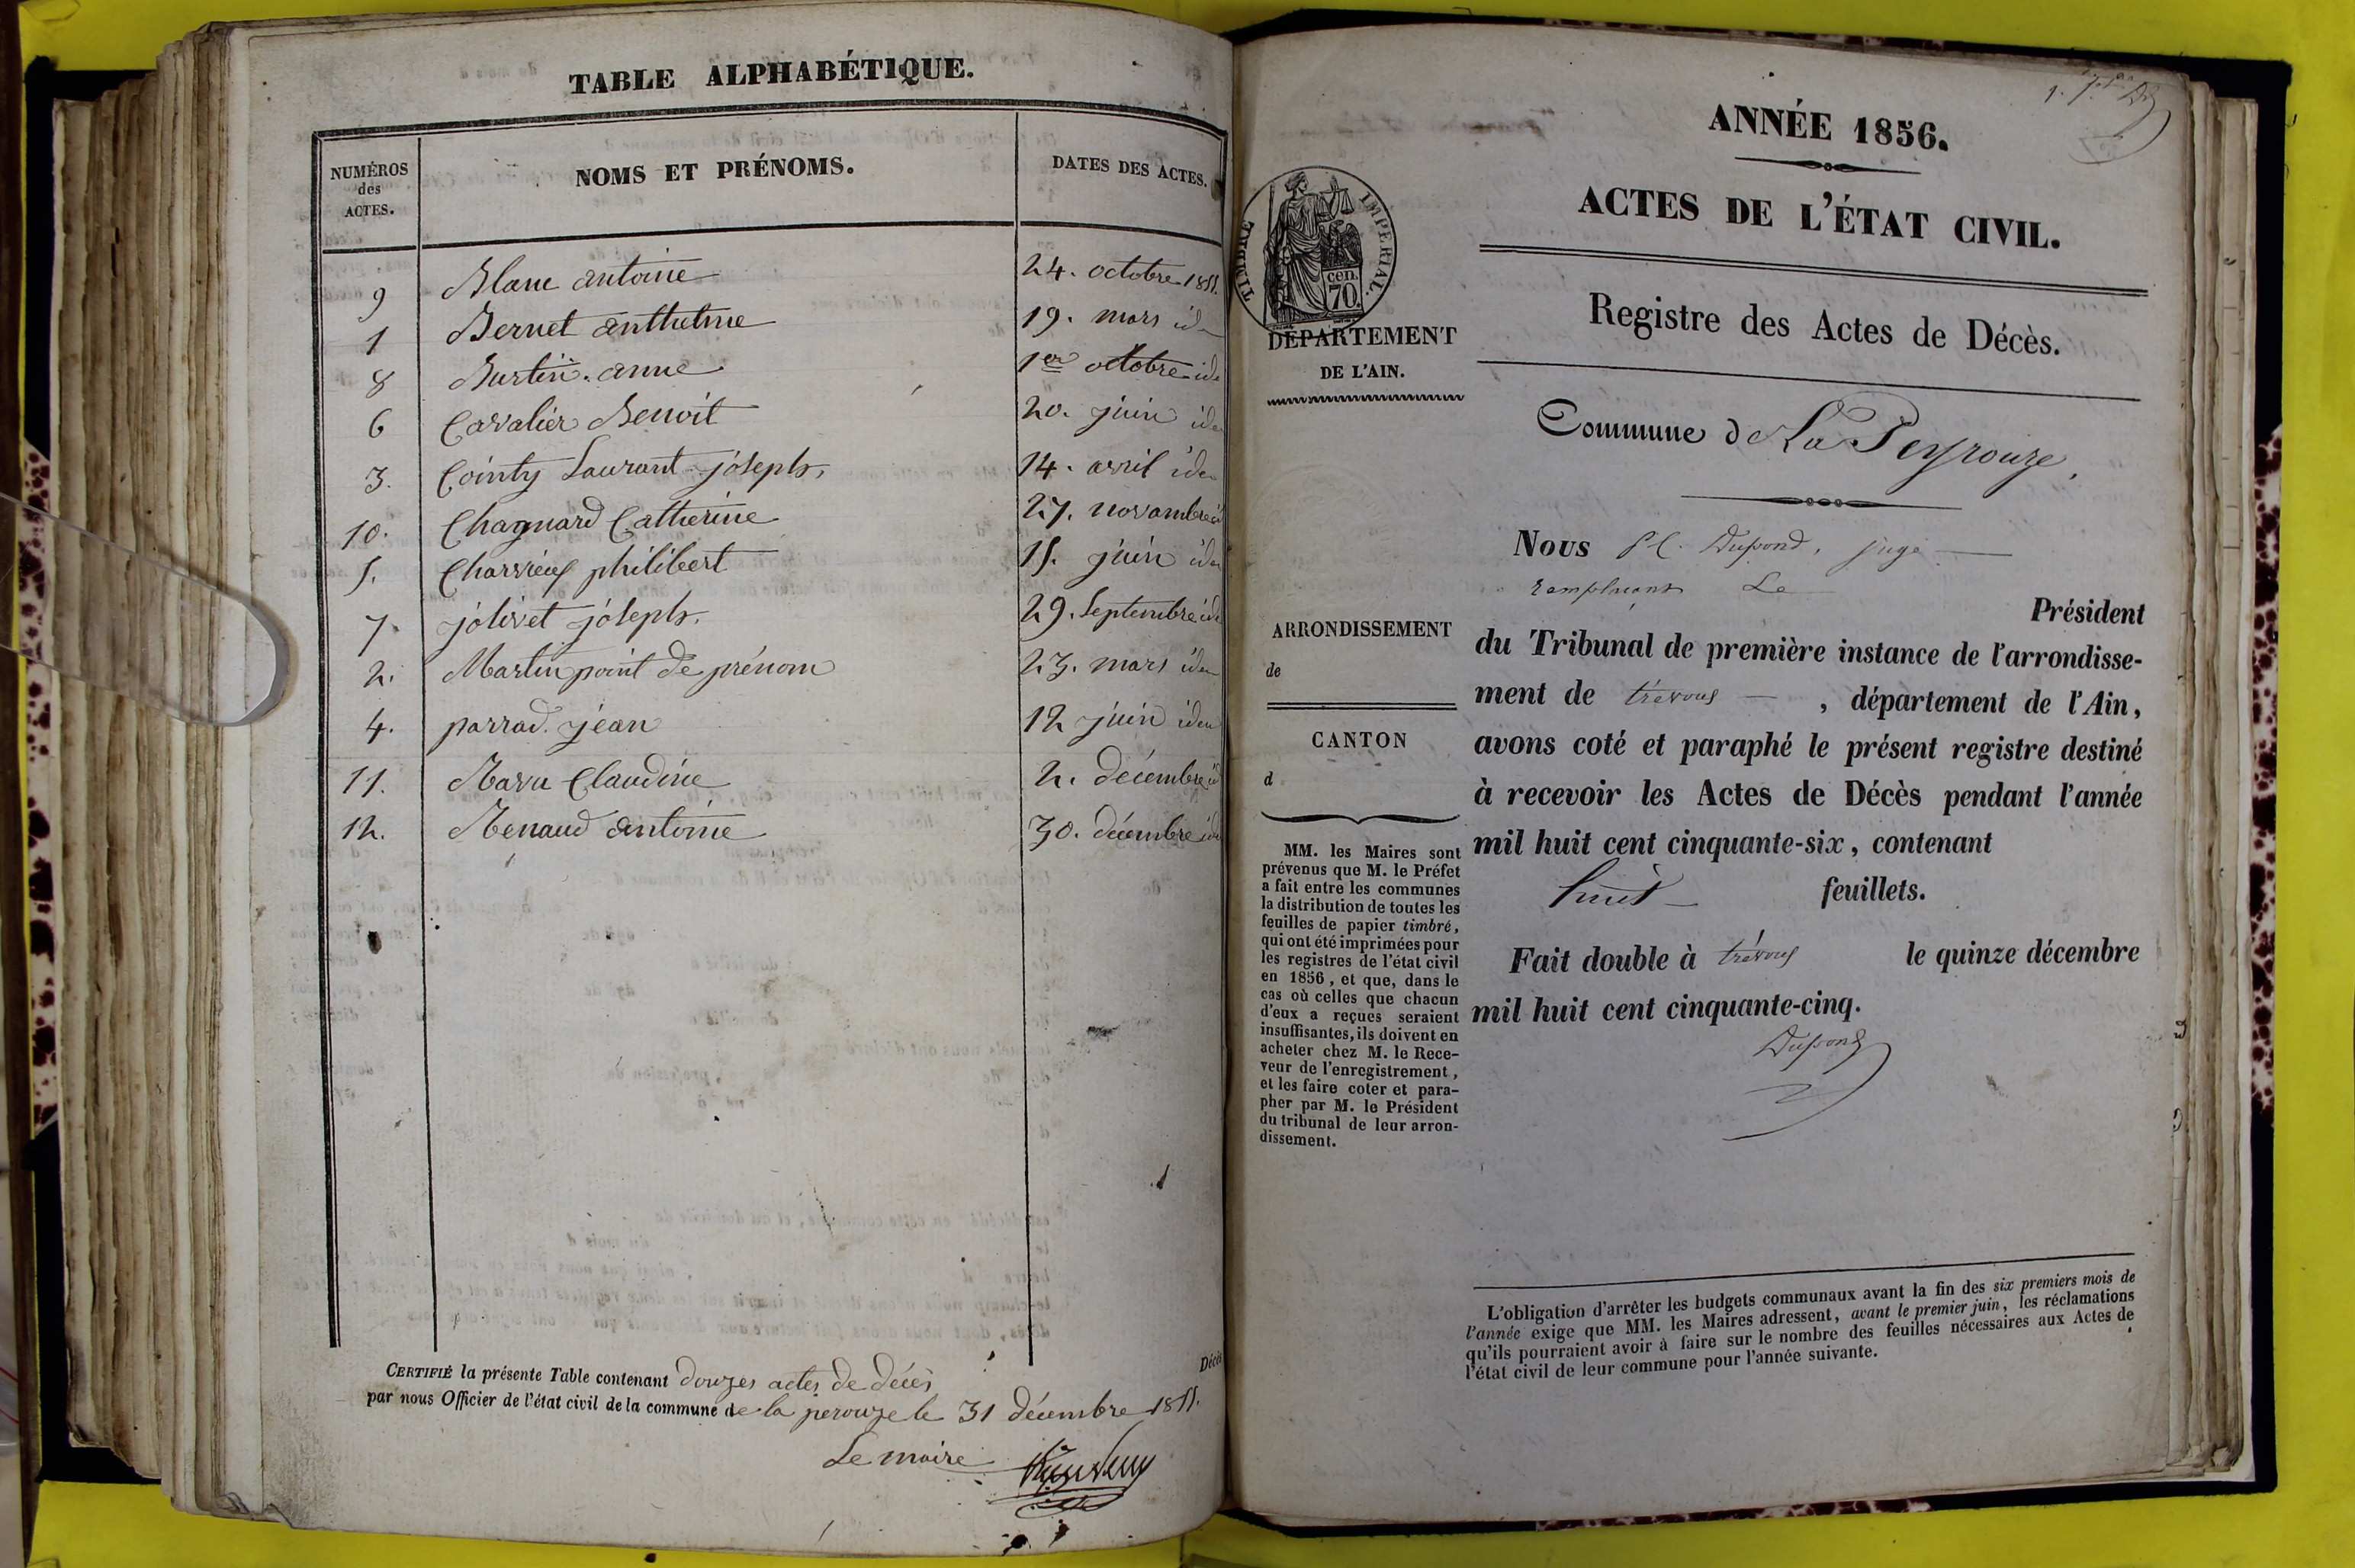 TABLE ALPHABÉTIQUE.
NUMÉROS
des
ACTES.
NOMS ET PRÉNOMS.
DATES DES ACTES.
9 Blanc antoine 24. octobre 1855.
1 Bernet anthelme 19. mars
8 Burtin. anne 1er octobre ide
6 Cavalier Benoit 20. juin ide
3. Cointy Laurant joseph. 14. avril ide
10. Chagnard Catherine 27. novambre
5. Charvieux philibert 15. juin iden
7. jolivet joseph. 29. Septembre ide
2. Martin point de prénom 23. mars iden
4. parrad. jean 12 juin iden
11. Ravu Claudine 2. décembre id
12. Renaud antoine 30. décembre ide
CERTIFIÉ la présente Table contenant douzes actes de décès Décès
par nous Officier de l'état civil de la commune de la perouze le 31 décembre 1855.
Le maire
ANNÉE 1856.
ACTES DE L'ÉTAT CIVIL.
Registre des Actes de Décès.
TIMBRE IMPERIAL.
cen.
70.
DÉPARTEMENT
DE L'AIN.
Commune de La Peyrouze,
Nous Dupond, juge
remplaçant Le
Président
du Tribunal de première instance de l'arrondisse-
ment de trévoux , département de l'Ain,
avons coté et paraphé le présent registre destiné
à recevoir les Actes de Décès pendant l'année
mil huit cent cinquante-six, contenant
huit feuillets.
Fait double à trévoux le quinze décembre
mil huit cent cinquante-cinq.
Dupond
ARRONDISSEMENT
de
CANTON
d
MM. les Maires sont
prévenus que M. le Préfet
a fait entre les communes
la distribution de toutes les
feuilles de papier timbré,
qui ont été imprimées pour
les registres de l'état civil
en 1856, et que, dans le
cas où celles que chacun
d'eux a reçues seraient
insuffisantes, ils doivent en
acheter chez M. le Rece-
veur de l'enregistrement,
et les faire coter et para-
pher par M. le Président
du tribunal de leur arron-
dissement.
L'obligation d'arrêter les budgets communaux avant la fin des six premiers mois de
l'année exige que MM. les Maires adressent, avant le premier juin, les réclamations
qu'ils pourraient avoir à faire sur le nombre des feuilles nécessaires aux Actes de
l'état civil de leur commune pour l'année suivante.